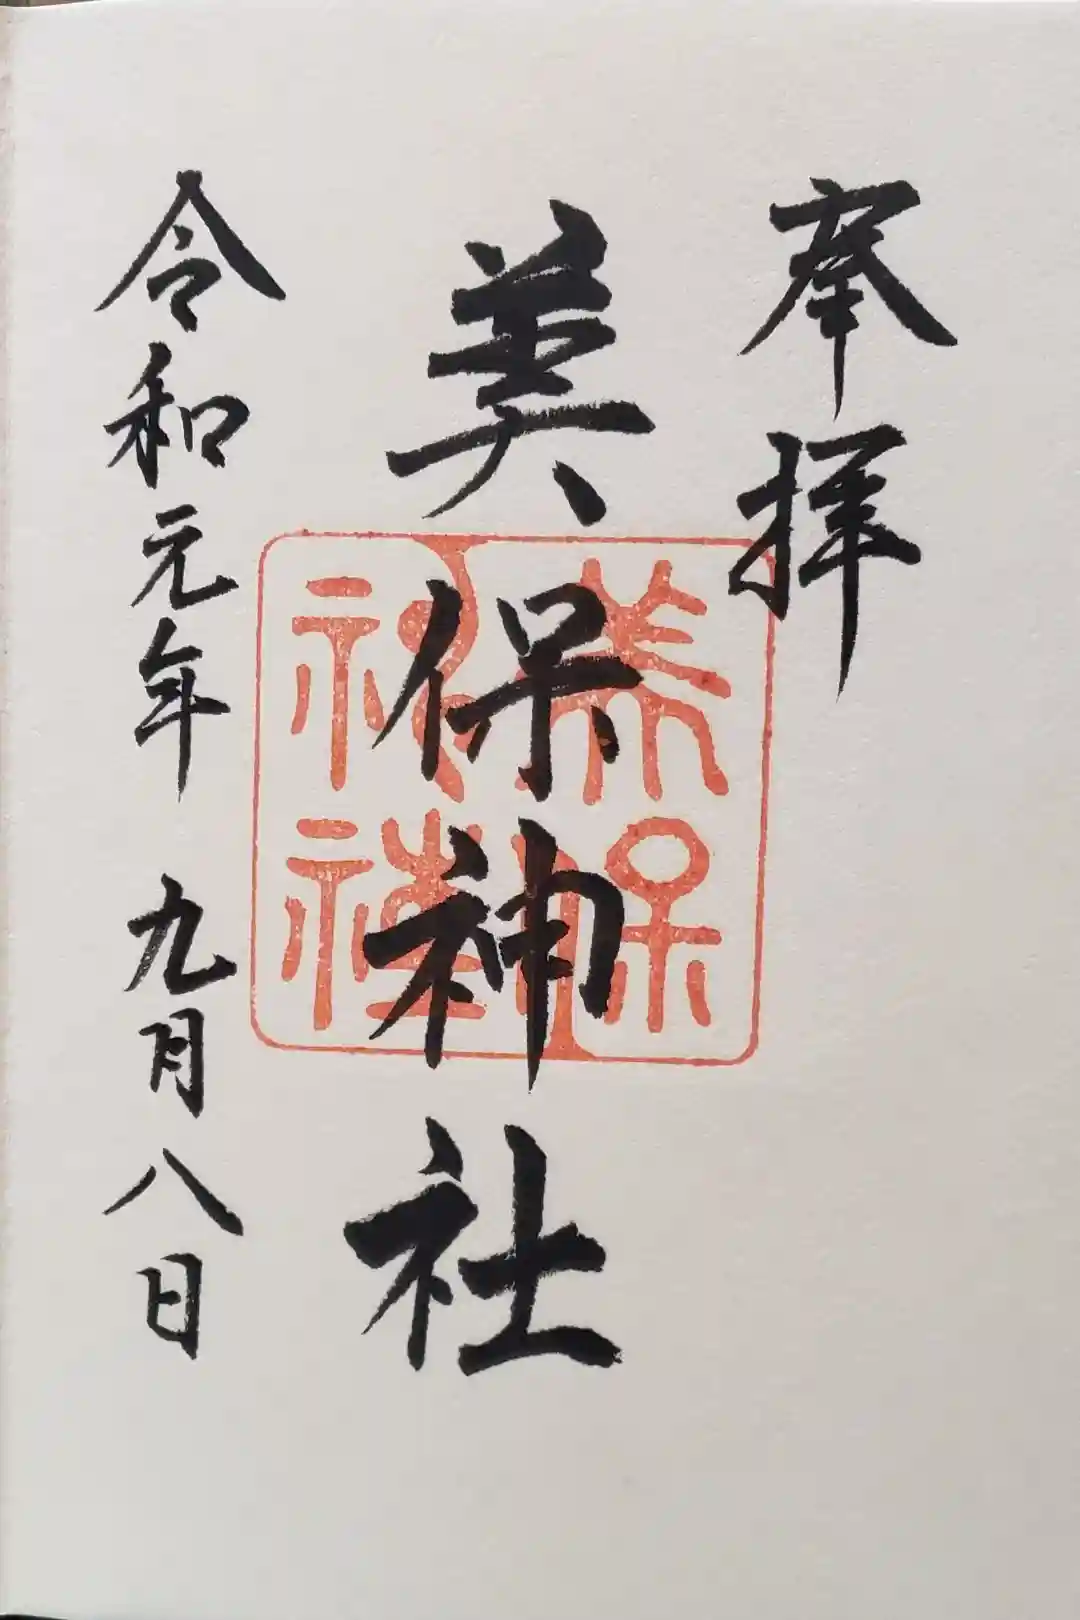 奉拝
美保神社
美保
神社
令和元年 九月八日